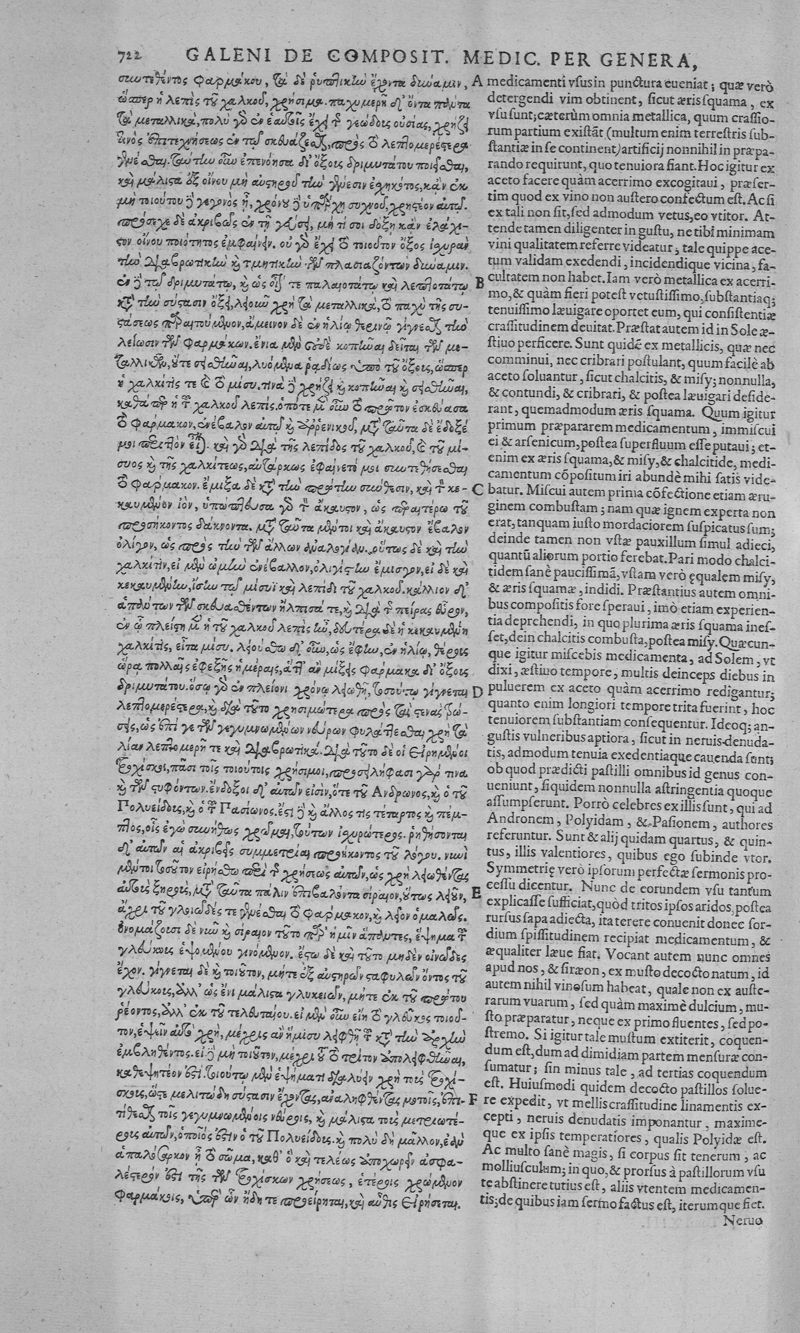 722 GALENI DE COMPOSIT. MEDIC. PER GENERA,
συντεθέντος φαρμάκου, τὰ δὲ ῥυπτικὴν ἔχοντα δύναμιν,
ὥσπερ ἡ λεπὶς τοῦ χαλκοῦ, χρήσιμα. παχυμερῆ δ' ὄντα πάντα
τὰ μεταλλικὰ, πολὺ γὰρ ἐν ἑαυτοῖς ἔχει τῆς γεώδους οὐσίας, χρῄζει
τινὸς ἐπιτεχνήσεως ἐν τῷ σκευάζεσθαι, πρὸς τὸ λεπτομερέστερα
γενέσθαι. ταύτην οὖν ἐπενόησα δι' ὄξους δριμυτάτου ποιεῖσθαι,
καὶ μάλιστα ἐξ οἴνου μὴ αὐστηροῦ τὴν γένεσιν ἐσχηκότος, κἂν ἐκ
μὴ τοιούτου δὲ γεγονὸς ᾖ, χρόνου δὲ ὑπάρχῃ συχνοῦ, χρηστέον αὐτῷ.
πρόσεχε δὲ ἀκριβῶς ἐν τῇ γεύσει, μή τί σοι δόξῃ κἂν ἐλάχι-
στον οἴνου ποιότητος ἐμφαίνειν. οὐ γὰρ ἔχει τὸ τοιοῦτον ὄξος ἰσχυρὰν
τὴν διαβρωτικὴν καὶ τμητικὴν τῶν πλησιαζόντων δύναμιν.
ἐν δὲ τῷ δριμυτάτῳ, καὶ ὡς οἷόν τε παλαιοτάτῳ καὶ λεπτοτάτῳ
κατὰ τὴν σύστασιν ὄξει, λειοῦν χρὴ τὰ μεταλλικὰ, τὸ παχὺ τῆς συ-
στάσεως παραιτούμενον, ἄμεινον δὲ ἐν ἡλίῳ θερινῷ γίγνεσθαι τὴν
λείωσιν τῶν φαρμάκων. ἔνια μὲν οὐδὲ κοπῆναι δεῖται τῶν με-
ταλλικῶν, οὔτε σησθῆναι, λυόμενα ῥᾳδίως ὑπὸ τοῦ ὄξους, ὥσπερ
ἡ χαλκῖτίς τε καὶ τὸ μίσυ. τινὰ δὲ χρῄζει καὶ κοπῆναι καὶ σησθῆναι,
καθάπερ ἡ τοῦ χαλκοῦ λεπίς. ὁπότε μὲν οὖν τὸ πρῶτον ἐσκεύασα
τὸ φάρμακον, ἐνέβαλον αὐτῷ καὶ ἀρρενικοῦ, μετὰ ταῦτα δὲ ἔδοξέ
μοι περιττὸν εἶναι. καὶ γὰρ διὰ τῆς λεπίδος τοῦ χαλκοῦ, καὶ τοῦ μί-
συος καὶ τῆς χαλκίτεως, αὐτάρκως ἐφαίνετό μοι συντεθεῖσθαι
τὸ φάρμακον. ἔμιξα δὲ κατὰ τὴν πρώτην σύνθεσιν, καὶ τὸν κε-
καυμένον ἰὸν, ὑπώπτευσα γὰρ τὸν ἄκαυστον, ὡς περαιτέρω τοῦ
προσήκοντος δάκνοντα. μετὰ ταῦτα μέντοι καὶ ἄκαυστον ἔβαλον
ὀλίγον, ὡς πρὸς τὴν τῶν ἄλλων ἀναλογίαν. οὕτως δὲ καὶ τὴν
χαλκῖτιν, εἰ μὲν ὠμὴν ἐνέβαλλον, ὀλιγίστην ἔμισγον, εἰ δὲ καὶ
κεκαυμένην, ἴσην τῷ μίσυϊ καὶ λεπίδι τοῦ χαλκοῦ. κάλλιον δ'
ἁπάντων τῶν σκευασθέντων ἤλπισά τε, καὶ διὰ τῆς πείρας εὗρον,
ἐν ᾧ πλείστη μὲν ἡ τοῦ χαλκοῦ λεπὶς ἦν, δευτέρα δὲ ἡ κεκαυμένη
χαλκῖτις, εἶτα μίσυ. λειούσθω δ' οὖν, ὡς ἔφην, ἐν ἡλίῳ, θέρους
ὥρᾳ πολλαῖς ἐφεξῆς ἡμέραις, ἅττ' ἂν μίξῃς φάρμακα δι' ὄξους
δριμυτάτου. ὅσῳ γὰρ ἐν πλείονι χρόνῳ λειωθῇ, τοσούτῳ γίγνεται
λεπτομερέστερα, καὶ διὰ τοῦτο χρησιμώτερα πρὸς τὰ στενὰς τρώ-
σεις, ὡς ἐπί γε τῶν γεγυμνωμένων νεύρων φυλάττεσθαι χρὴ τὰ
λίαν λεπτομερῆ τε καὶ διαβρωτικά. διὰ τοῦτο δὲ οἱ εἰρημένοι
τροχίσκοι, πᾶσι τοῖς τοιούτοις χρήσιμοι, προσειλήφασι γάρ τινα
καὶ τῶν στυφόντων. ἔνδοξοι δ' αὐτῶν εἰσιν, ὅ τε τοῦ Ἄνδρωνος, καὶ ὁ τοῦ
Πολυείδους, καὶ ὁ τοῦ Πασίωνος. ἔστι δὲ καὶ ἄλλος τις τέταρτος καὶ πέμ-
πτος, οἷς ἐγὼ συνήθως χρῶμαι, τούτων ἰσχυρότερος. ῥηθήσονται
δ' αὐτῶν αἱ ἀκριβεῖς συμμετρίαι προήκοντος τοῦ λόγου. νυνὶ
μέντοι τοσοῦτον εἰρήσθω περὶ τῆς χρήσεως αὐτῶν, ὡς χρὴ λειωθέντας
αὐτοὺς ξηροὺς, μετὰ ταῦτα πάλιν ἐπιβαλόντα σίραιον, οὕτως λειοῦν,
ἄχρι τοῦ γλοιῶδές τε γενέσθαι τὸ φάρμακον, καὶ λεῖον ὁμαλῶς.
ὀνομάζουσι δὲ νῦν καὶ σίραιον τοῦτο παρ' ἡμῖν ἅπαντες, ἕψημα τοῦ
γλεύκους ἑψομένου γινόμενον. ἔστω δὲ καὶ τοῦτο μηδὲν οἰνῶδες
ἔχον. γίγνεται δὲ καὶ τοιοῦτον, μήτε ἐξ αὐστηρῶν σταφυλῶν ὄντος τοῦ
γλεύκους, ἀλλ' ὡς ἔνι μάλιστα γλυκειῶν, μήτε ἐκ τοῦ πρώτου
ῥέοντος, ἀλλ' ἐκ τοῦ τελευταίου. εἰ μὲν οὖν εἴη τὸ γλεῦκος τοιοῦ-
τον, ἕψειν αὐτὸ χρὴ, μέχρις ἂν ἥμισυ λειφθῇ τοῦ κατὰ τὴν ἀρχὴν
ἐμβληθέντος. εἰ δὲ μὴ τοιοῦτον, μέχρι τοῦ τὸ τρίτον ἀπολειφθῆναι,
καθεψητέον ἐστί. τοιούτῳ μὲν ἑψήματι διαλύειν χρὴ τοὺς τροχί-
σκους, ὥστε μελιτώδη σύστασιν ἔχοντας, ἀναληφθέντας μοτοῖς, ἐπι-
τίθεσθαι τοῖς γεγυμνωμένοις νεύροις, καὶ μάλιστα τοὺς μετριωτέ-
ρους αὐτῶν, ὁποῖός ἐστιν ὁ τοῦ Πολυείδους. καὶ πολὺ δὴ μᾶλλον, ἐὰν
ἁπαλόσαρκον ᾖ τὸ σῶμα, καθ' ὃ καὶ τελέως ἀποχωρεῖν ἀσφα-
λέστερόν ἐστι τῆς τῶν τροχίσκων χρήσεως, ἑτέροις χρώμενον
φαρμάκοις, ὑπὲρ ὧν ἤδη τε προείρηται, καὶ αὖθις εἰρήσεται.
A medicamenti vsus in punctura eueniat; quæ verò
detergendi vim obtinent, sicut æris squama, ex
vsu sunt; cæterùm omnia metallica, quum crassio-
rum partium existāt (multum enim terrestris sub-
stantiæ in se continent) artificij nonnihil in præpa-
rando requirunt, quo tenuiora fiant. Hoc igitur ex
aceto facere quàm acerrimo excogitaui, præser-
tim quod ex vino non austero confectum est. Ac si
ex tali non sit, sed admodum vetus, eo vtitor. At-
tende tamen diligenter in gustu, ne tibi minimam
vini qualitatem referre videatur; tale quippe ace-
tum validam exedendi, incidendique vicina, fa-
B cultatem non habet. Iam verò metallica ex acerri-
mo, & quàm fieri potest vetustissimo, substantiaq;
tenuissimo læuigare oportet eum, qui consistentiæ
crassitudinem deuitat. Præstat autem id in Sole æ-
stiuo perficere. Sunt quidē ex metallicis, quæ nec
comminui, nec cribrari postulant, quum facilè ab
aceto soluantur, sicut chalcitis, & misy; nonnulla,
& contundi, & cribrari, & postea læuigari deside-
rant, quemadmodum æris squama. Quum igitur
primum præpararem medicamentum, immiscui
ei & arsenicum, postea superfluum esse putaui; et-
enim ex æris squama, & misy, & chalcitide, medi-
camentum cōpositum iri abundè mihi satis vide-
C batur. Miscui autem prima cōfectione etiam æru-
ginem combustam; nam quæ ignem experta non
erat, tanquam iusto mordaciorem suspicatus sum;
deinde tamen non vstæ pauxillum simul adieci,
quantū aliorum portio ferebat. Pari modo chalci-
tidem sanè paucissimā, vstam verò ęqualem misy,
& æris squamæ, indidi. Præstantius autem omni-
bus compositis fore speraui, imò etiam experien-
tia deprehendi, in quo plurima æris squama ines-
set, dein chalcitis combusta, postea misy. Quæcun-
que igitur miscebis medicamenta, ad Solem, vt
dixi, æstiuo tempore, multis deinceps diebus in
D puluerem ex aceto quàm acerrimo redigantur;
quanto enim longiori tempore trita fuerint, hoc
tenuiorem substantiam consequentur. Ideoq; an-
gustis vulneribus aptiora, sicut in neruis denuda-
tis, admodum tenuia exedentiaque cauenda sunt;
ob quod prædicti pastilli omnibus id genus con-
ueniunt, siquidem nonnulla astringentia quoque
assumpserunt. Porrò celebres ex illis sunt, qui ad
Andronem, Polyidam, & Pasionem, authores
referuntur. Sunt & alij quidam quartus, & quin-
tus, illis valentiores, quibus ego subinde vtor.
Symmetriæ verò ipsorum perfectæ sermonis pro-
cessu dicentur. Nunc de eorundem vsu tantum
E explicasse sufficiat, quòd tritos ipsos aridos, postea
rursus sapa adiecta, ita terere conuenit donec sor-
dium spissitudinem recipiat medicamentum, &
æqualiter læue fiat. Vocant autem nunc omnes
apud nos, & siræon, ex musto decocto natum, id
autem nihil vinosum habeat, quale non ex auste-
rarum vuarum, sed quàm maximè dulcium, mu-
sto præparatur, neque ex primo fluentes, sed po-
stremo. Si igitur tale mustum extiterit, coquen-
dum est, dum ad dimidiam partem mensuræ con-
sumatur; sin minus tale, ad tertias coquendum
est. Huiusmodi quidem decocto pastillos solue-
F re expedit, vt mellis crassitudine linamentis ex-
cepti, neruis denudatis imponantur, maxime-
que ex ipsis temperatiores, qualis Polyidæ est.
Ac multo sanè magis, si corpus sit tenerum, ac
molliusculam; in quo, & prorsus à pastillorum vsu
te abstinere tutius est, aliis vtentem medicamen-
tis; de quibus iam sermo factus est, iterumque fiet.
Neruo